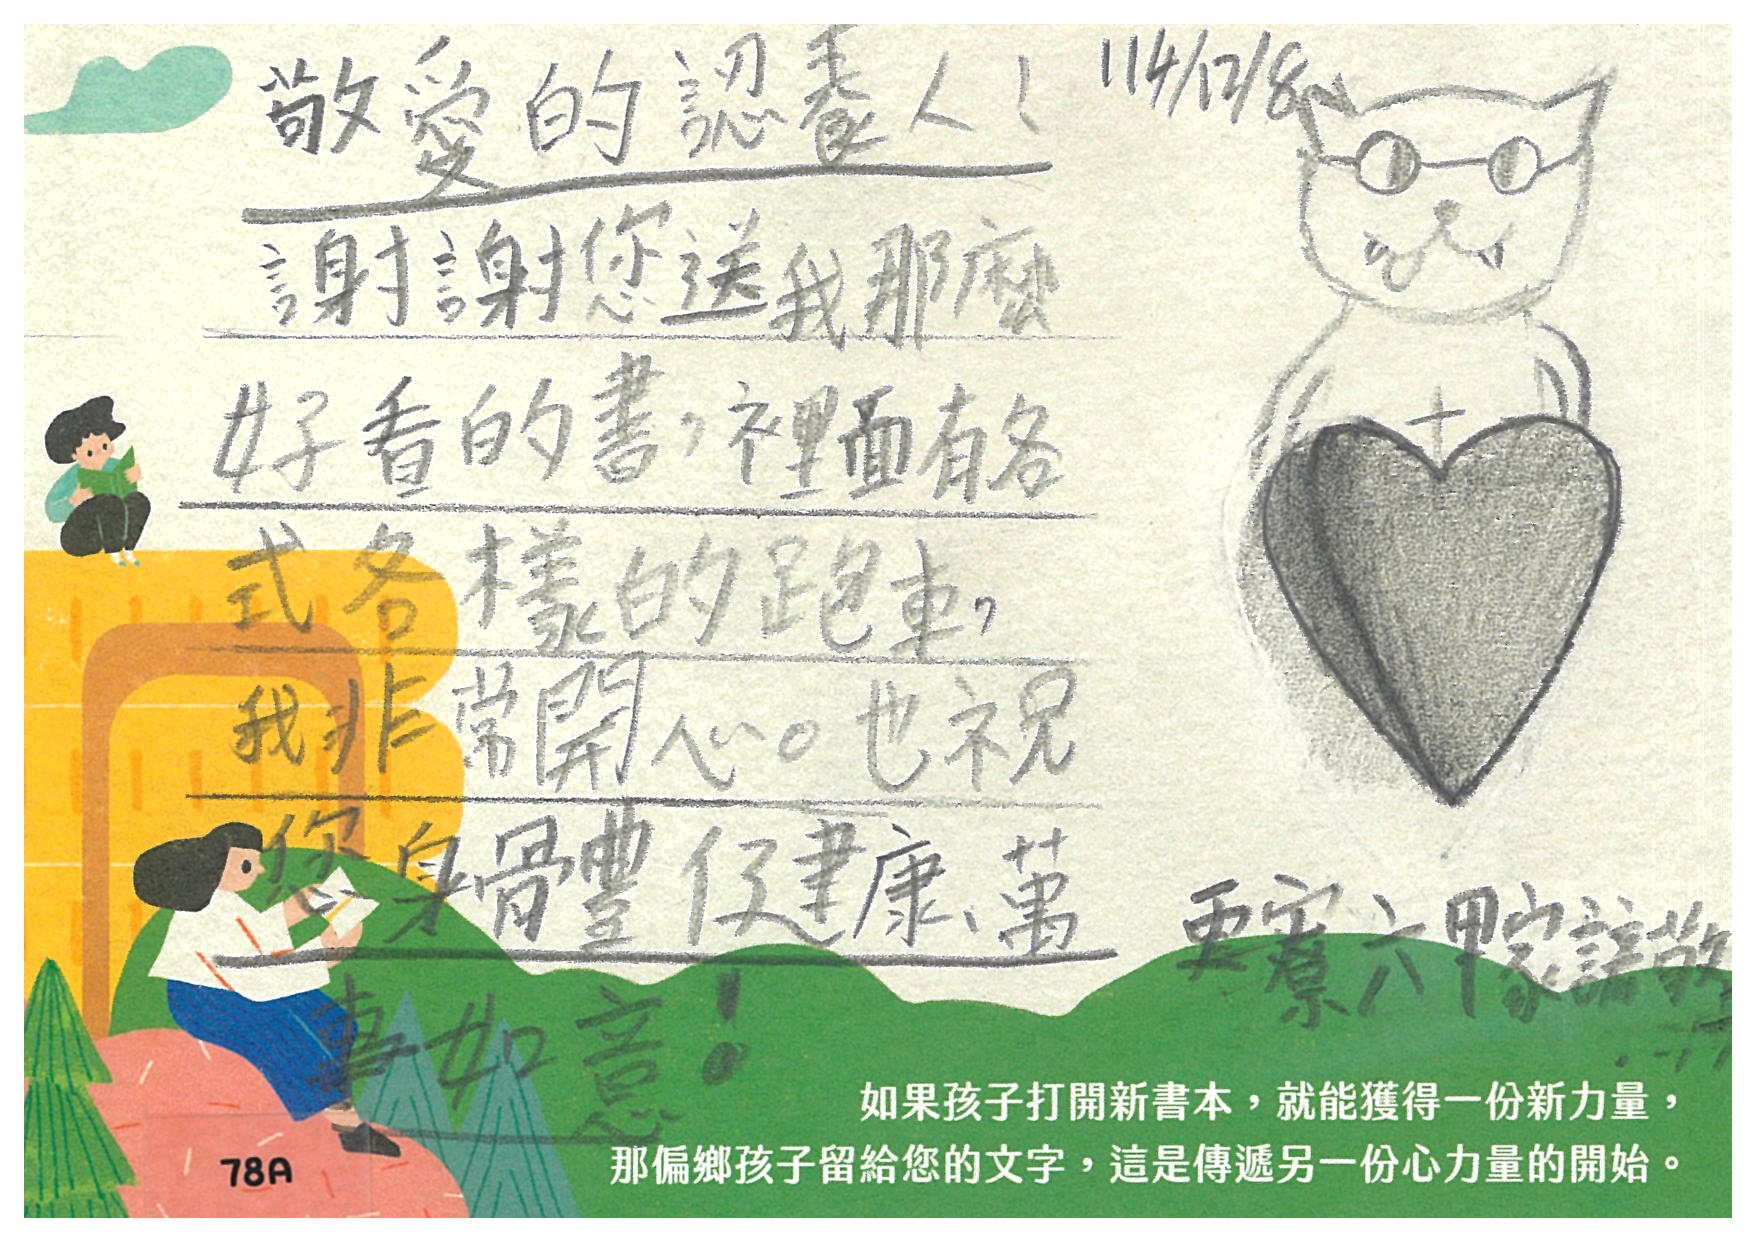 敬愛的認養人！
114/12/8
謝謝您送我那麼
好看的書，裡面有各
式各樣的跑車，
我非常開心。也祝
您身體健康、萬
事如意！
更寮六甲
謙敬
78A
如果孩子打開新書本，就能獲得一份新力量，
那偏鄉孩子留給您的文字，這是傳遞另一份心力量的開始。